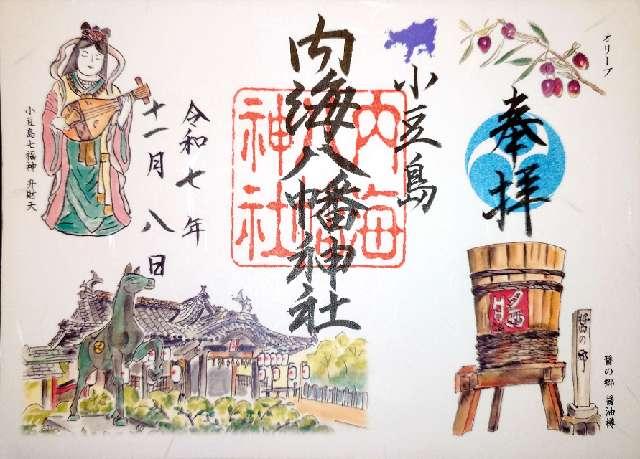 オリーブ
奉拝
小豆島
内海八幡神社
内海
八幡
神社
令和七年
十一月八日
小豆島七福神 弁財天
醤の郷
醤の郷 醤油樽